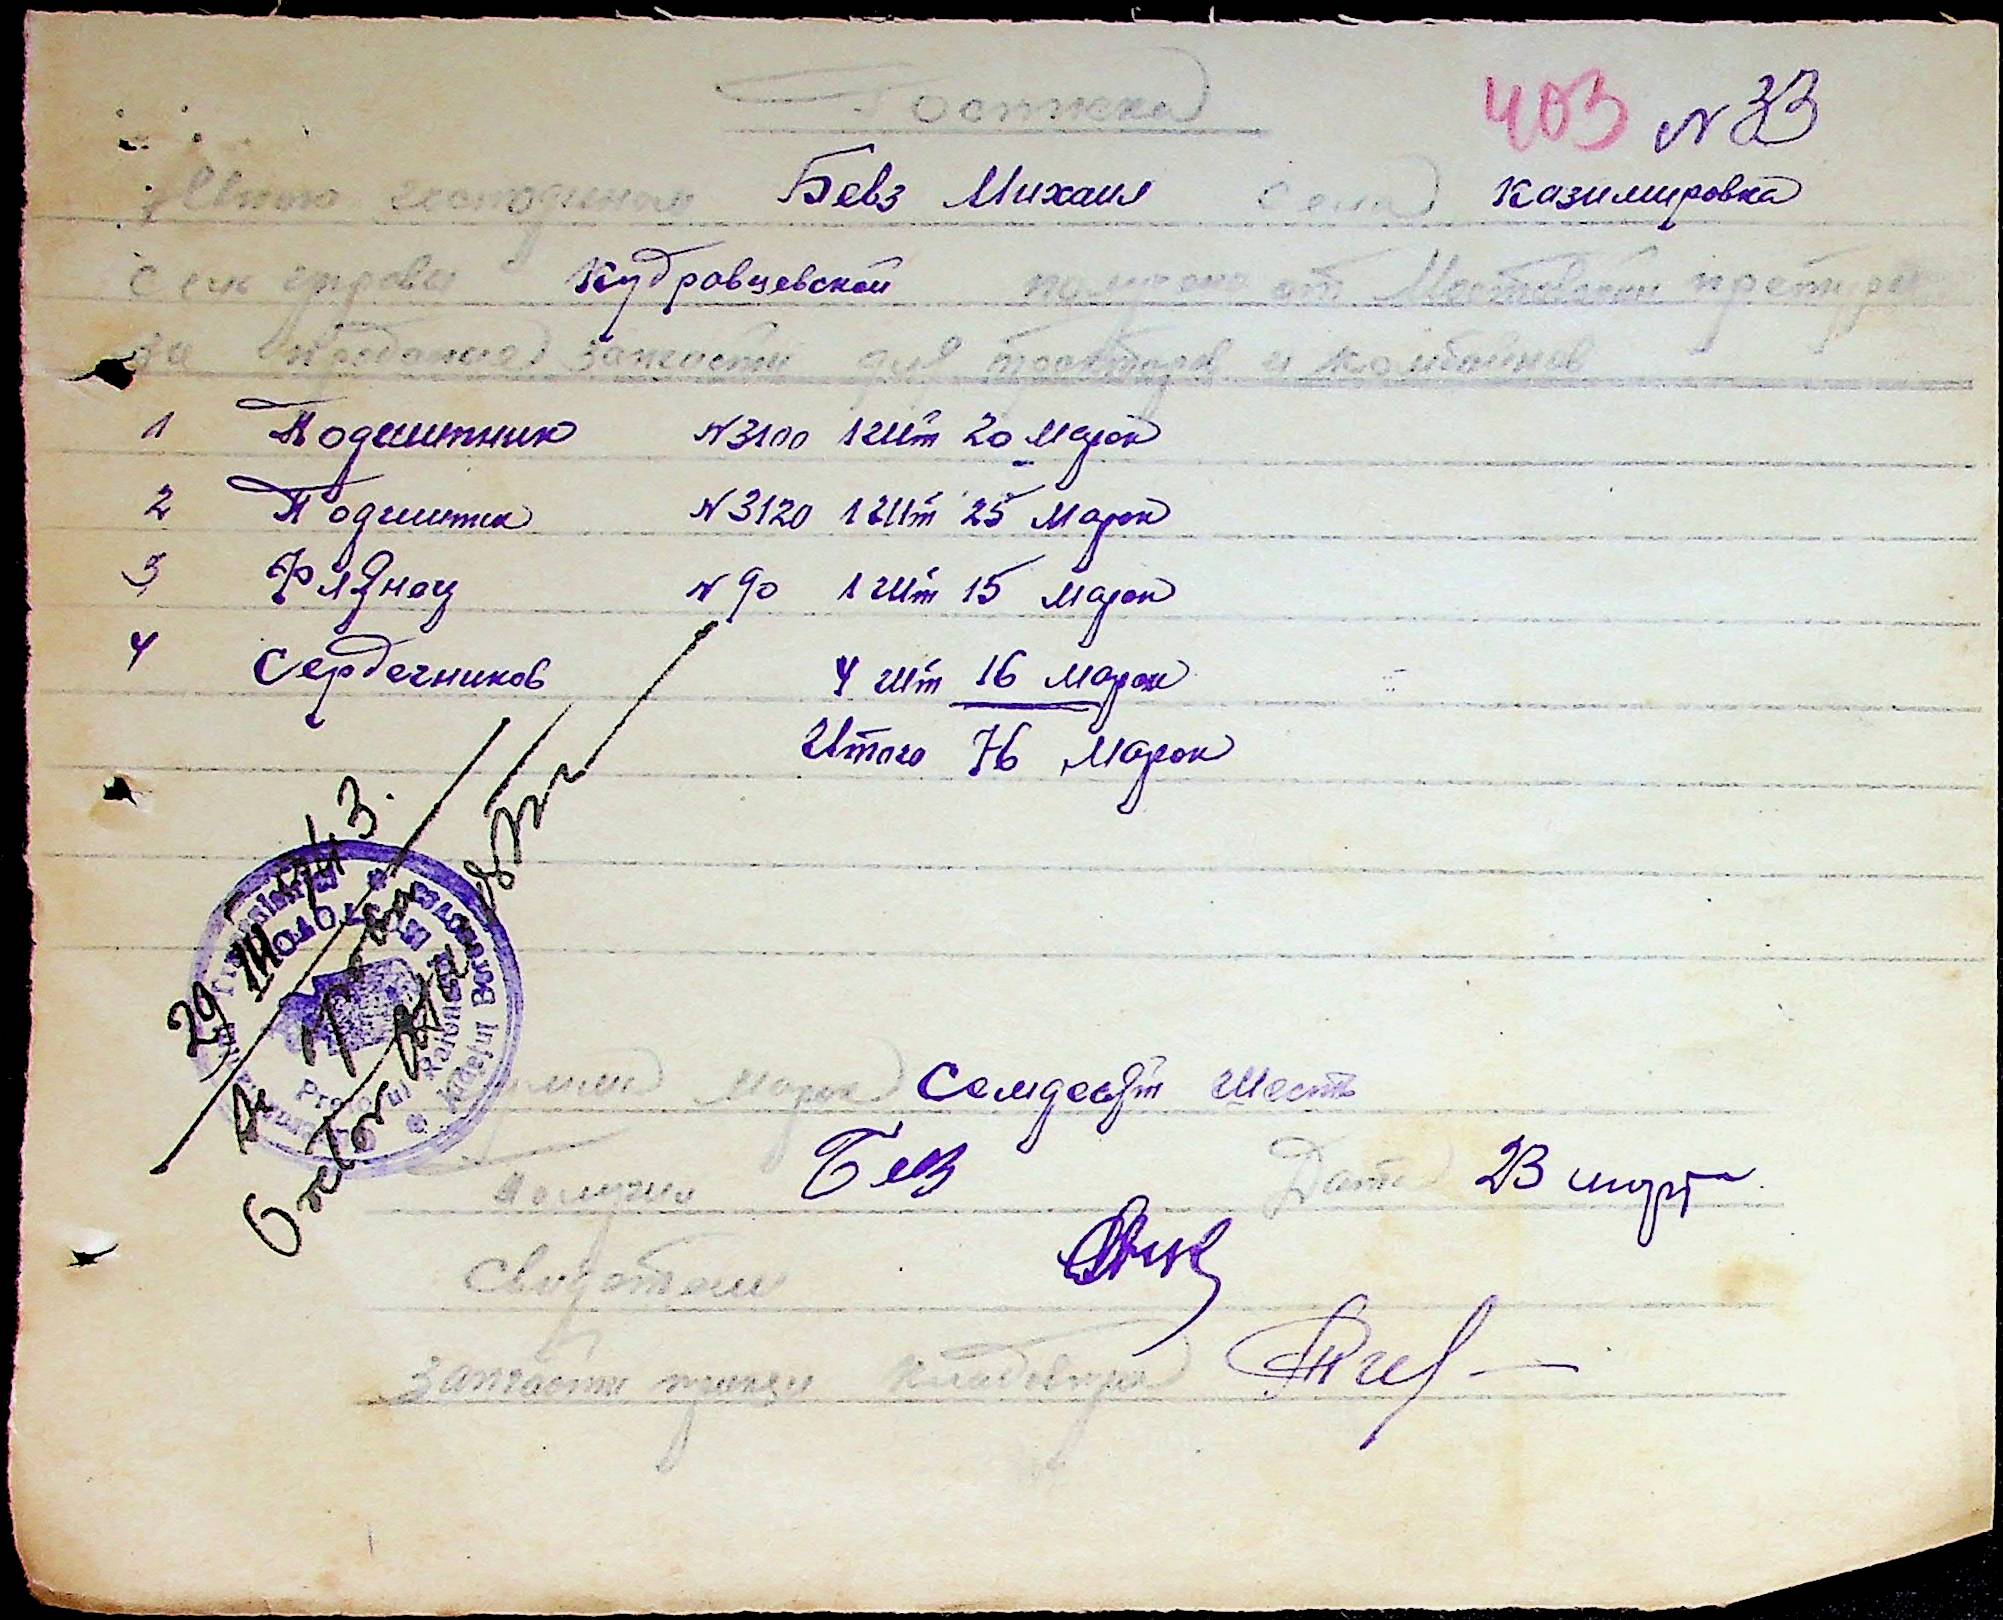 Гостжка
403 N 33
Мною господином Бевз Михаил села Казимировка
сек управы Кудровцевской получено от Мостовской претуры
за проданые запчасти для тракторов и комбайнов
1 Подшипник N 3100 1 шт 20 марок
2 Подшипник N 3120 1 шт 25 марок
3 Флянец N 90 1 шт 15 марок
4 Сердечников 4 шт 16 марок
Итого 76 марок
29 III 943.
марок Семдесят шесть
Получил Бевз Дата 23 марта
Свидетели
Запчасти принял кладовщик